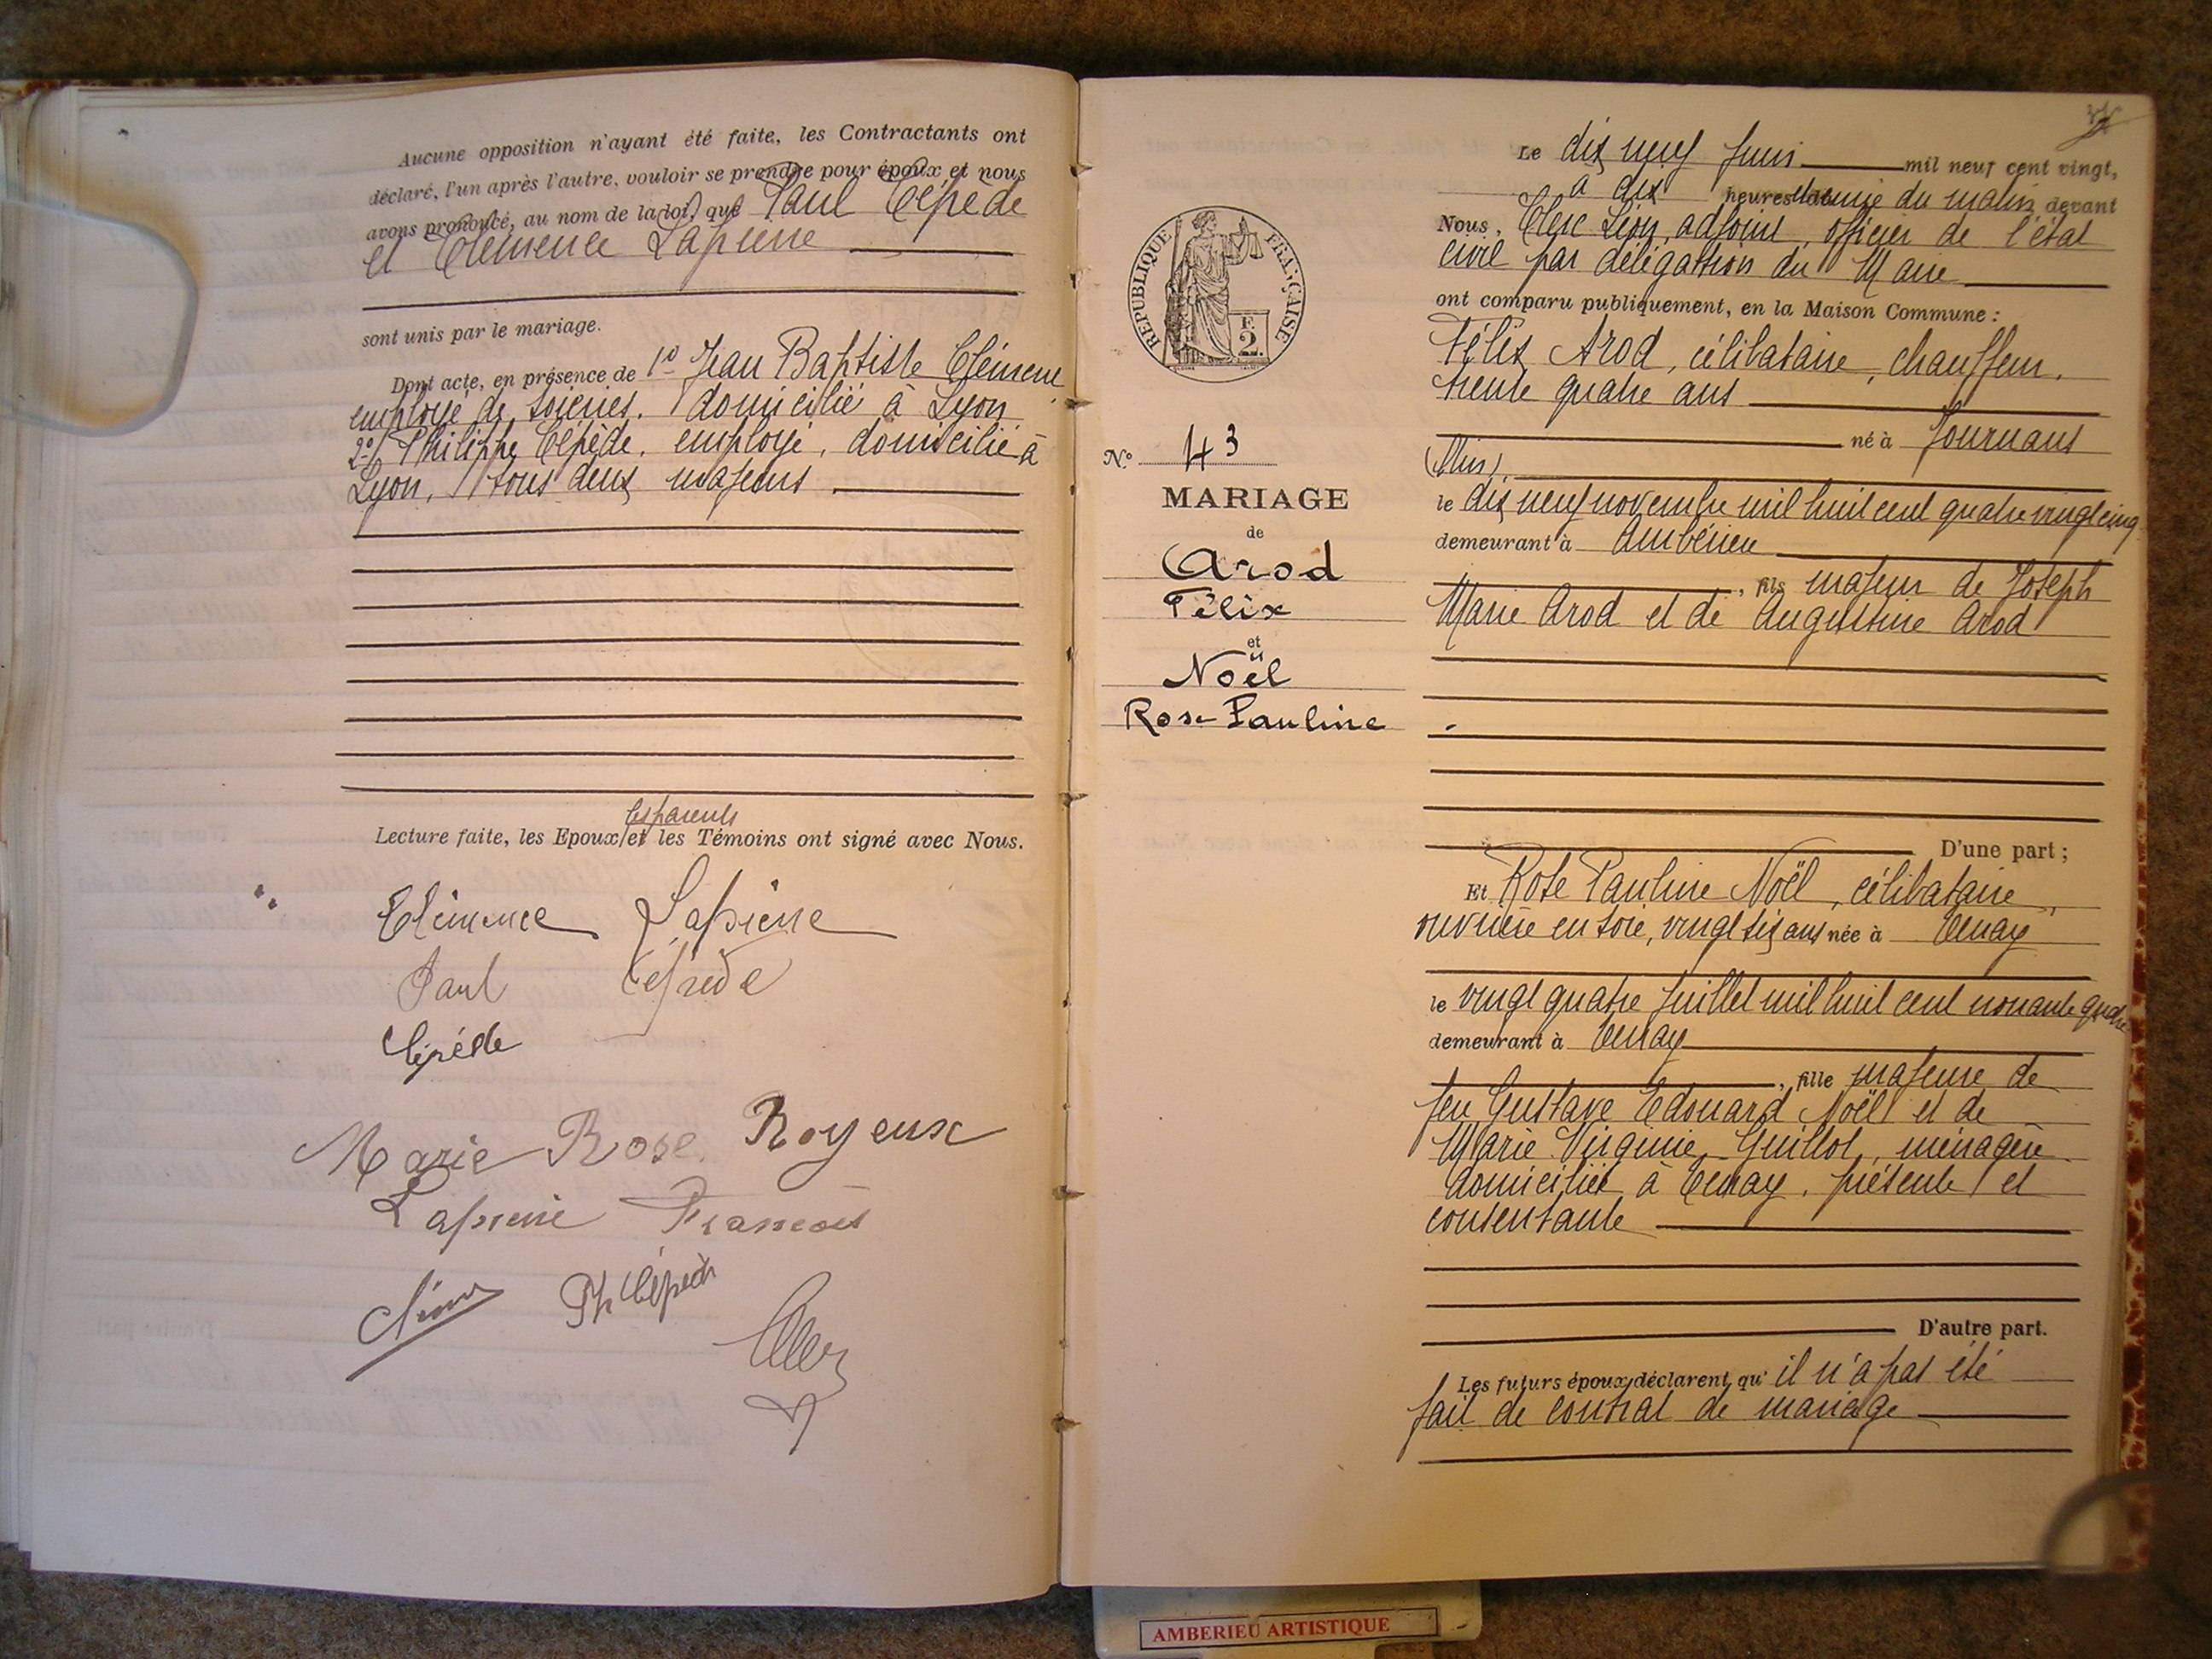 Aucune opposition n'ayant été faite, les Contractants ont
déclaré, l'un après l'autre, vouloir se prendre pour époux et nous
avons prononcé, au nom de la loi, que Paul Cépède
et Clémence Lapierre
sont unis par le mariage.
Dont acte, en présence de 1º Jean Baptiste Clément
employé de soieries, domicilié à Lyon
2º Philippe Cépède, employé, domicilié à
Lyon, tous deux majeurs
les parents
Lecture faite, les Epoux et les Témoins ont signé avec Nous.
Clémence Lapierre
Paul Cépède
Cépède
Marie Rose Royeux
Lapierre François
Ph Cépède
Le dix neuf juin mil neuf cent vingt,
à dix heures demie du matin devant
Nous, Clerc Léon, adjoint, officier de l'état
civil par délégation du Maire
ont comparu publiquement, en la Maison Commune :
Félix Arod, célibataire, chauffeur,
trente quatre ans
né à Journans
(Ain)
le dix neuf novembre mil huit cent quatre vingt cinq
demeurant à Ambérieu
, fils majeur de Joseph
Marie Arod et de Augustine Arod
RÉPUBLIQUE FRANÇAISE
F.
2.
Nº 43
MARIAGE
de
Arod
Félix
et
Noël
Rose Pauline
D'une part ;
Et Rose Pauline Noël, célibataire,
ouvrière en soie, vingt six ans née à Tenay
le vingt quatre juillet mil huit cent nonante quatre
demeurant à Tenay
, fille majeure de
feu Gustave Edouard Noël et de
Marie Virginie Guillot, ménagère
domiciliée à Tenay, présente et
consentante
D'autre part.
Les futurs époux déclarent qu'il n'a pas été
fait de contrat de mariage
AMBERIEU ARTISTIQUE